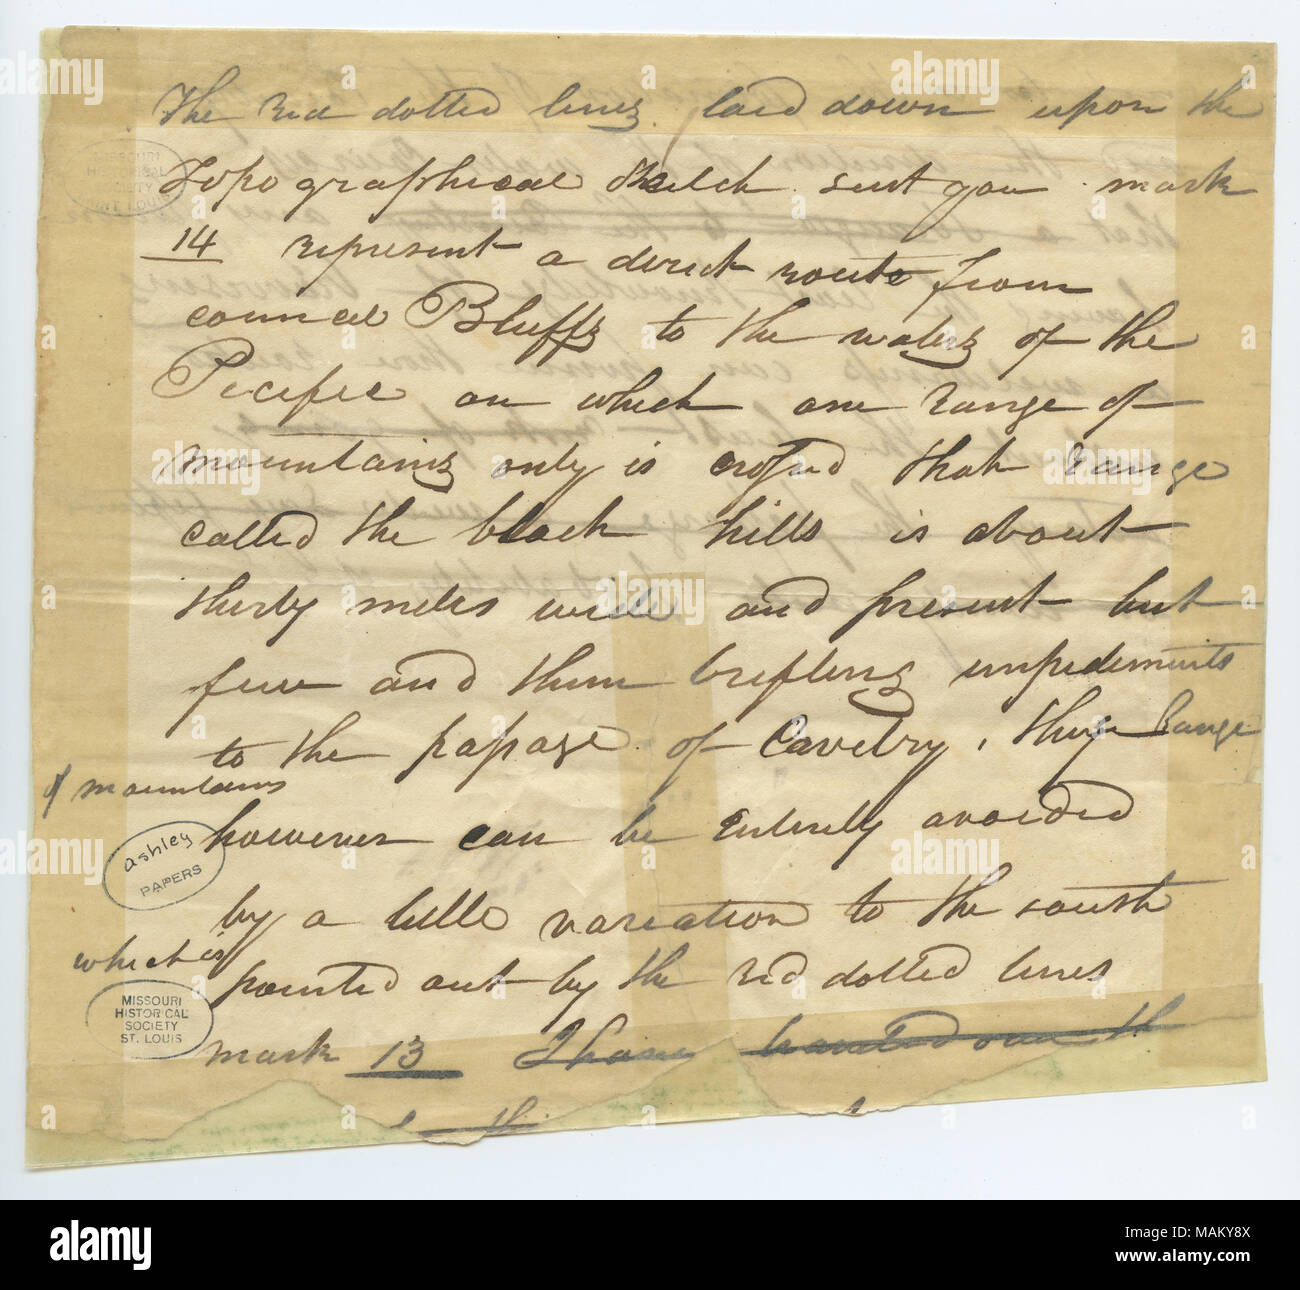 The red dotted lines laid down upon the
Topographical sketch sent you mark
14 represent a direct route from
council Bluffs to the waters of the
Pecific on which one range of
mountains only is crossed that range
called the black hills is about
thirty miles wide and present but
few and them trifling impediments
to the passage of Cavelry, this range
of mountains
however can be entirely avoided
ashley
PAPERS
by a little variation to the south
which is
pointed out by the red dotted lines
MISSOURI
HISTORICAL
SOCIETY
ST. LOUIS
mark 13 I have
MISSOURI
HISTORICAL
SOCIETY
SAINT LOUIS
alamy
Image ID: MAKY8X
www.alamy.com